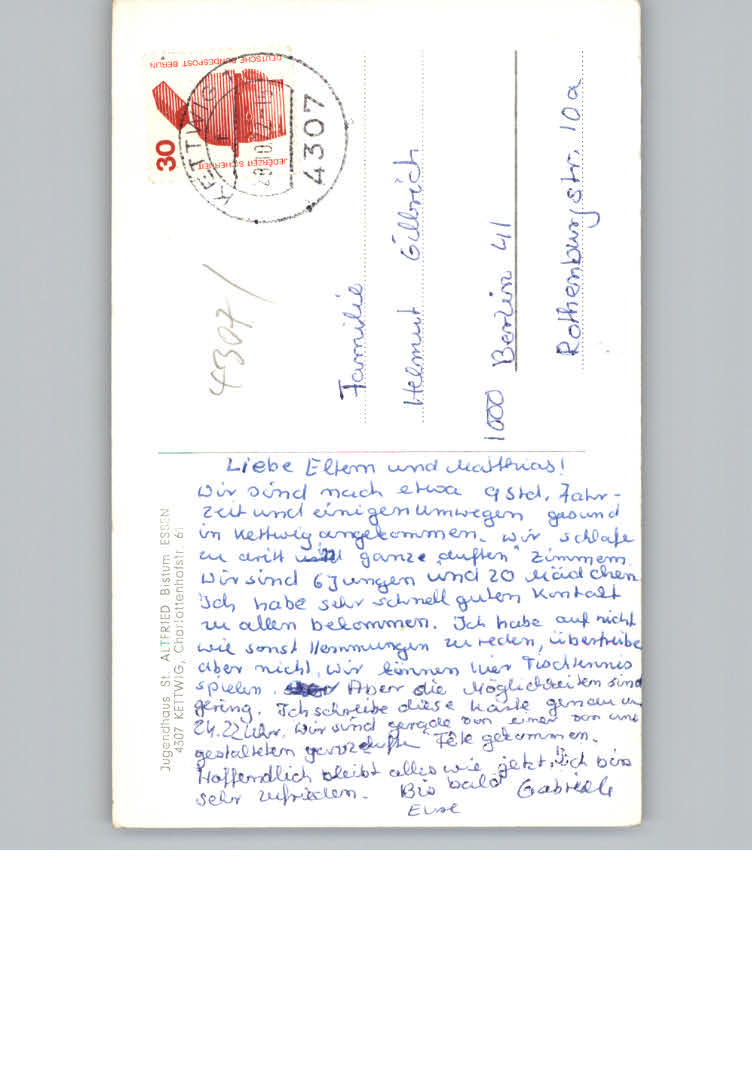 Liebe Eltern und Matthias!
Wir sind nach etwa 9 Std. Fahr-
zeit und einigen Umwegen gesund
in Kettwig angekommen. Wir schlafe
zu dritt ganze „duften" Zimmern.
Wir sind 6 Jungen und 20 Mädchen
Ich habe sehr schnell guten Kontakt
zu allen bekommen. Ich habe auf nicht
wie sonst Hemmungen zu reden, übertreibe
aber nicht. Wir können hier Tischtennis
spielen. Aber die Möglichkeiten sind
gering. Ich schreibe diese Karte genau um
24.22 Uhr. Wir sind gerade von einer von uns
gestalteten Fete gekommen.
Hoffendlich bleibt alles wie jetzt, ich bin
sehr zufrieden. Bis bald Gabriele
Eure
Jugendhaus St. ALTFRIED Bistum ESSEN
4307 KETTWIG, Charlottenhofstr. 61
DEUTSCHE BUNDESPOST BERLIN
JEDERZEIT SICHERHEIT
30
KETTWIG
4307
4307/
Familie
Helmut Gillrich
1000 Berlin 41
Rothenburgstr. 10a